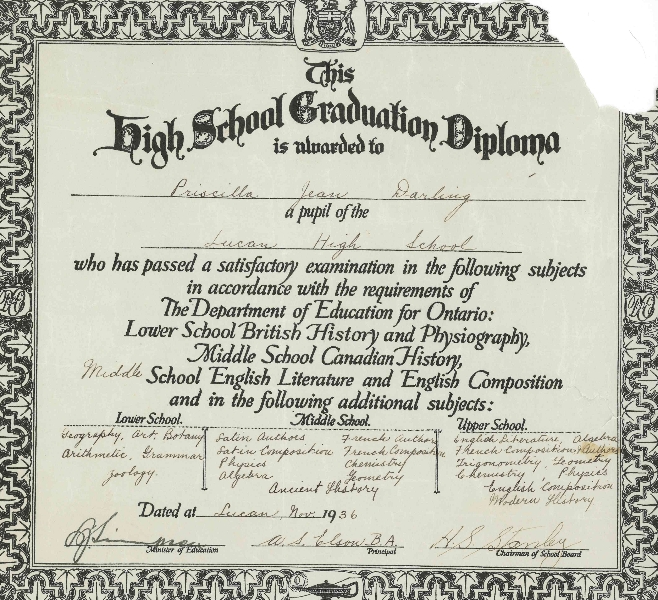 This
High School Graduation Diploma
is awarded to
Priscilla Jean Darling
a pupil of the
Lucan High School
who has passed a satisfactory examination in the following subjects
in accordance with the requirements of
The Department of Education for Ontario:
Lower School British History and Physiography,
Middle School Canadian History,
Middle School English Literature and English Composition
and in the following additional subjects:
Lower School. Middle School. Upper School.
Geography, Art, Botany Latin Authors French Authors English Literature, Algebra
Arithmetic, Grammar Latin Composition French Composition French Composition, Authors
Zoology. Physics Chemistry Trigonometry, Geometry
Algebra Geometry Chemistry Physics
Ancient History English Composition
Modern History
Dated at Lucan, Nov. 1936
A. S. Elson B.A. H.S. Stanley
Minister of Education Principal Chairman of School Board